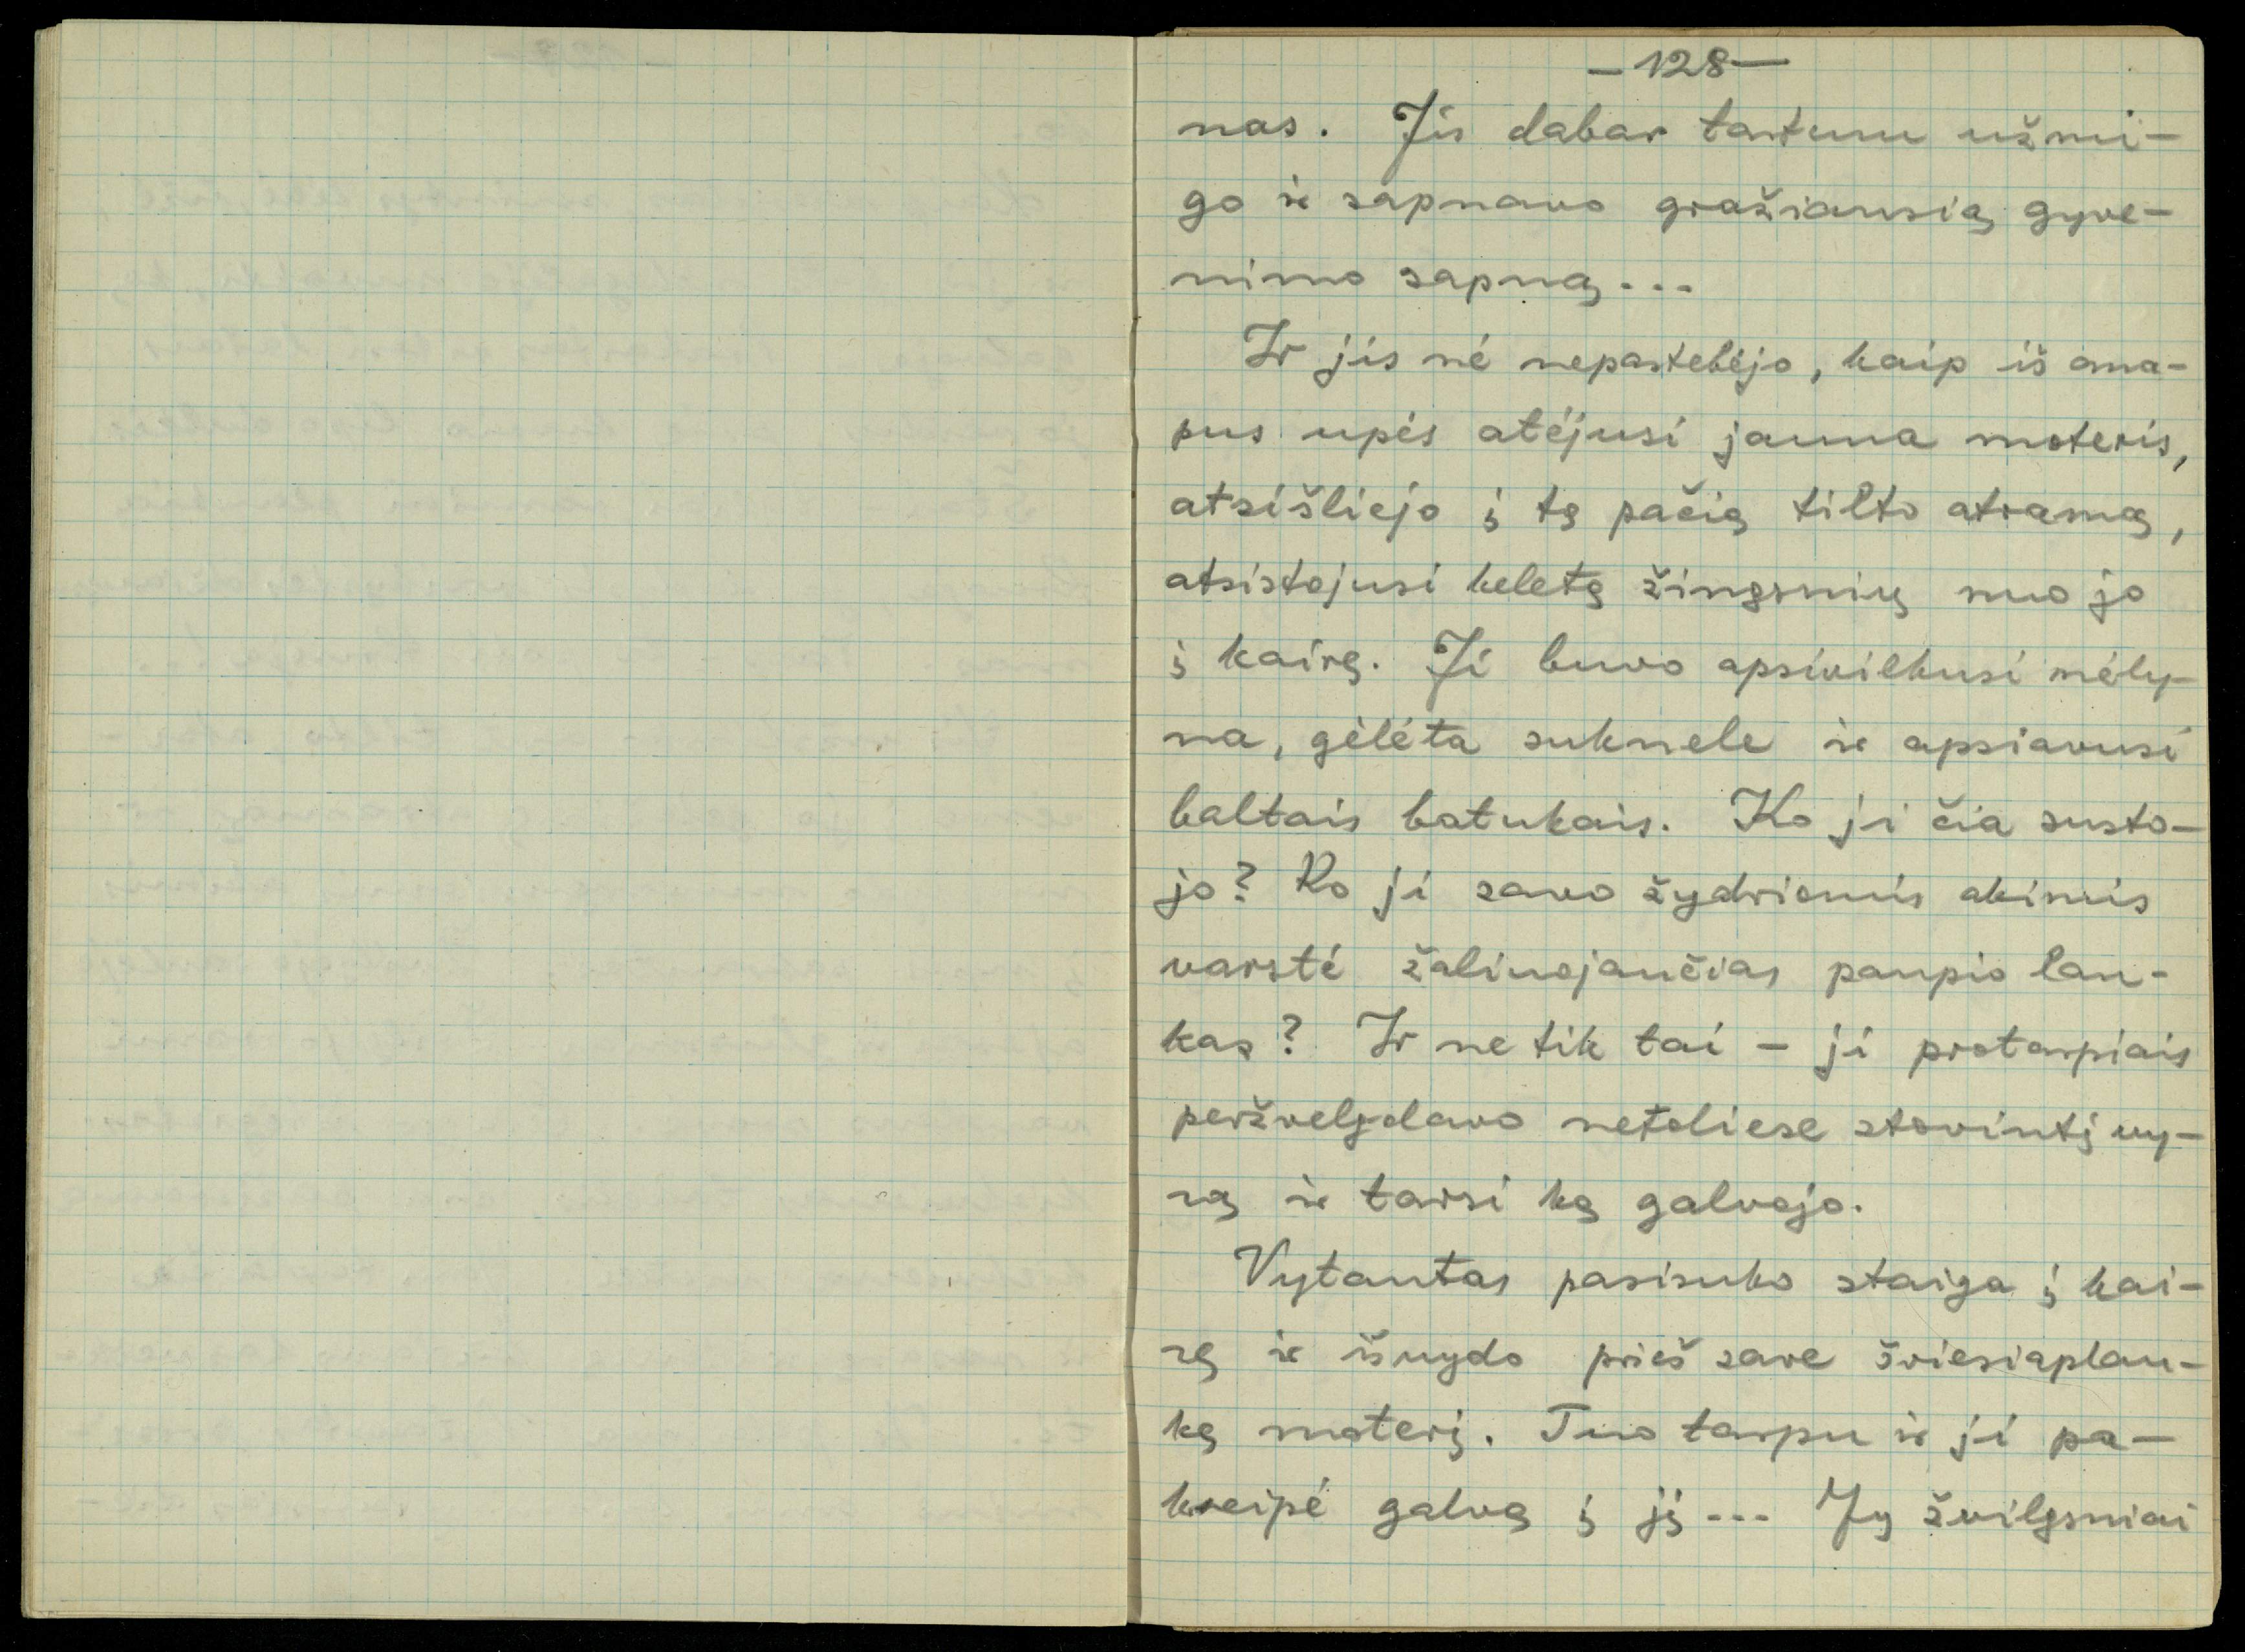 –128–
nas. Jis dabar tartum užmi-
go ir sapnavo gražiausią gyve-
nimo sapną...
Ir jis nė nepastebėjo, kaip iš ana-
pus upės atėjusi jauna moteris,
atsišliejo į tą pačią tilto atramą,
atsistojusi keletą žingsnių nuo jo
į kairę. Ji buvo apsivilkusi mėly-
na, gėlėta suknele ir apsiavusi
baltais batukais. Ko ji čia susto-
jo? Ko ji savo žydriomis akimis
varstė žaliuojančias paupio lan-
kas? Ir ne tik tai – ji protarpiais
peržvelgdavo netoliese stovintį vy-
rą ir tarsi ką galvojo.
Vytautas pasisuko staiga į kai-
rę ir išvydo prieš save šviesiaplau-
kę moterį. Tuo tarpu ir ji pa-
kreipė galvą į jį... Jų žvilgsniai